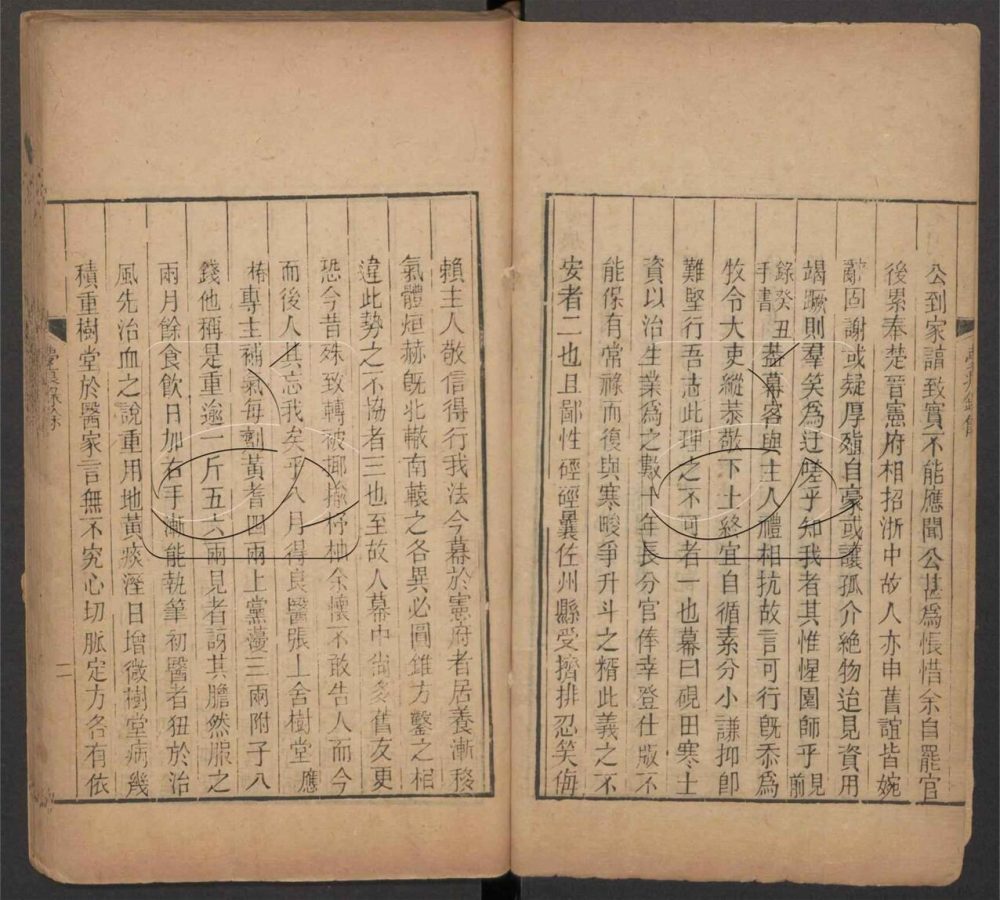 公到家諨致實不能應聞公甚爲悵惜余自罷官
後累奉楚晉憲府相招浙中故人亦申舊誼皆婉
辭固謝或疑厚殖自豪或譏孤介絶物迨見資用
竭蹶則羣矣爲迂嗟乎知我者其惟惺園師乎見前
錄癸丑手書蓋幕客與主人禮相抗故言可行旣忝爲
牧令大吏縱恭敬下士終宜自循素分小謙抑卽
難堅行吾志此理之不可者一也幕曰硯田寒士
資以治生業爲之數十年長分官俸幸登仕版不
能保有常祿而復與寒畯爭升斗之糈此義之不
安者二也且鄙性硜硜曩佐州縣受擠排忍笑侮
賴主人敬信得行我法今幕於憲府者居養漸移
氣體烜赫旣北轍南轅之各異必圓錐方鑿之相
違此勢之不協者三也至故人幕中尙多舊友更
恐今昔殊致轉被揶揄杼柚余懷不敢告人而今
而後人其忘我矣乎八月得良醫張上舍樹堂應
椿專主補氣每劑黃耆四兩上黨薓三兩附子八
錢他稱是重逾一斤五六兩見者訝其膽然服之
兩月餘食飮日加右手漸能執筆初醫者狃於治
風先治血之說重用地黃痰溼日增微樹堂病幾
積重樹堂於醫家言無不究心切脈定方各有依
二